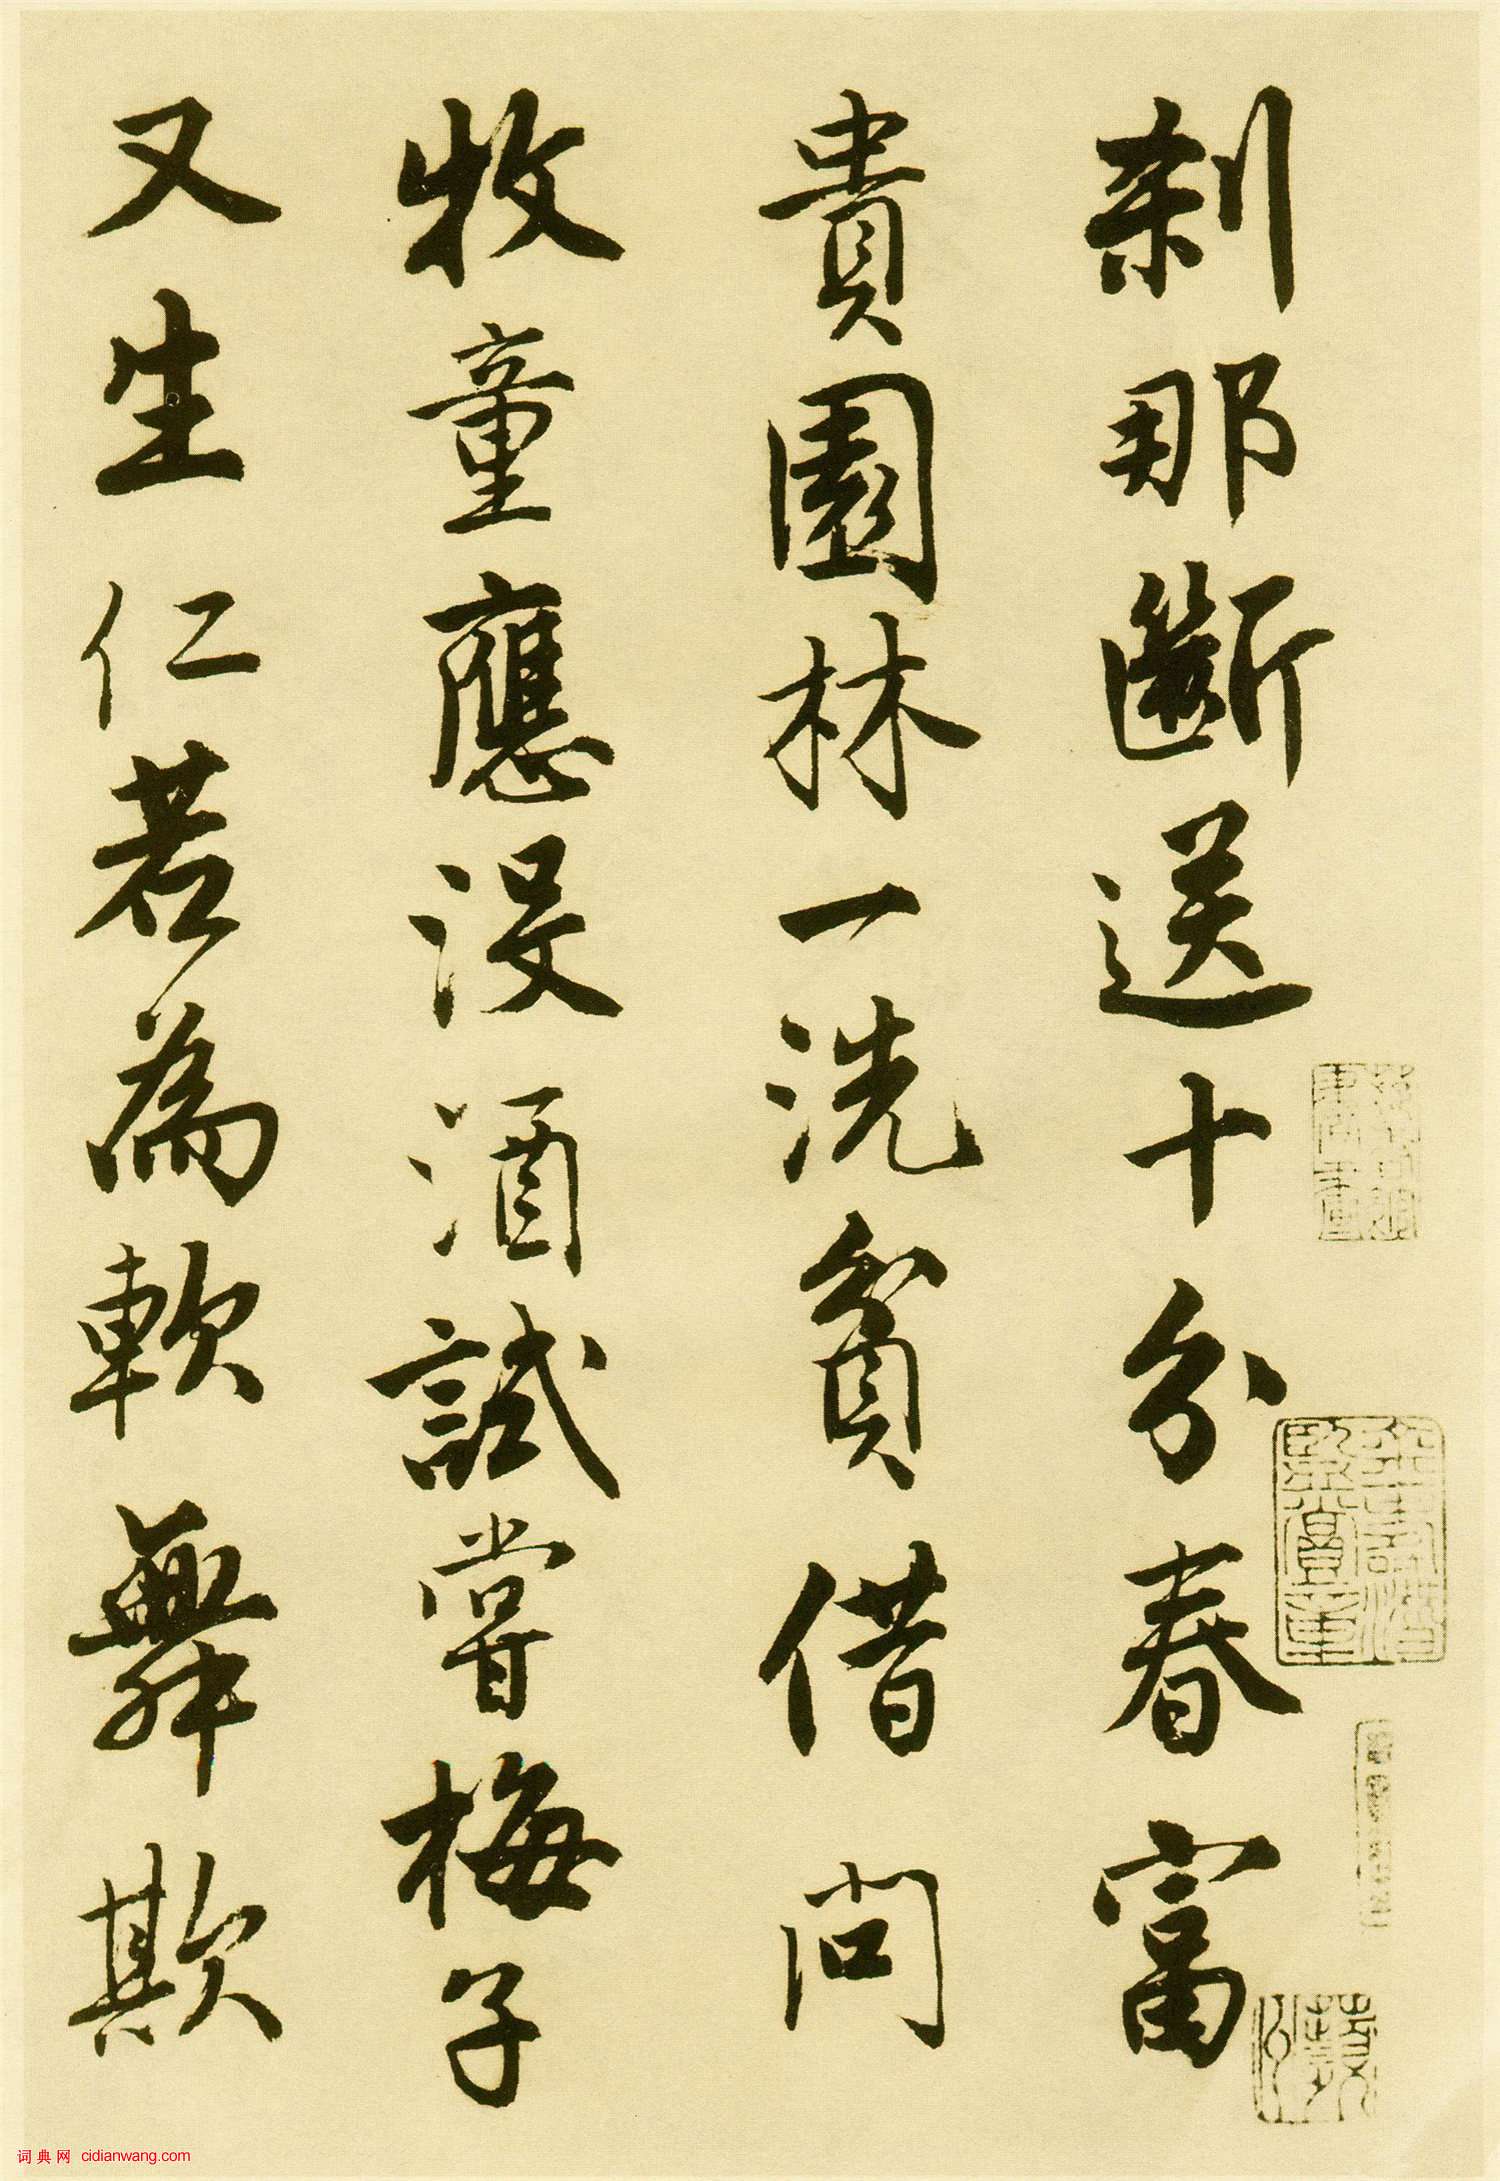 刹那斷送十分春富
貴園林一洗貧借問
牧童應沒酒試嘗梅子
又生仁若為軟舞欺
詞典网 cidianwang.com